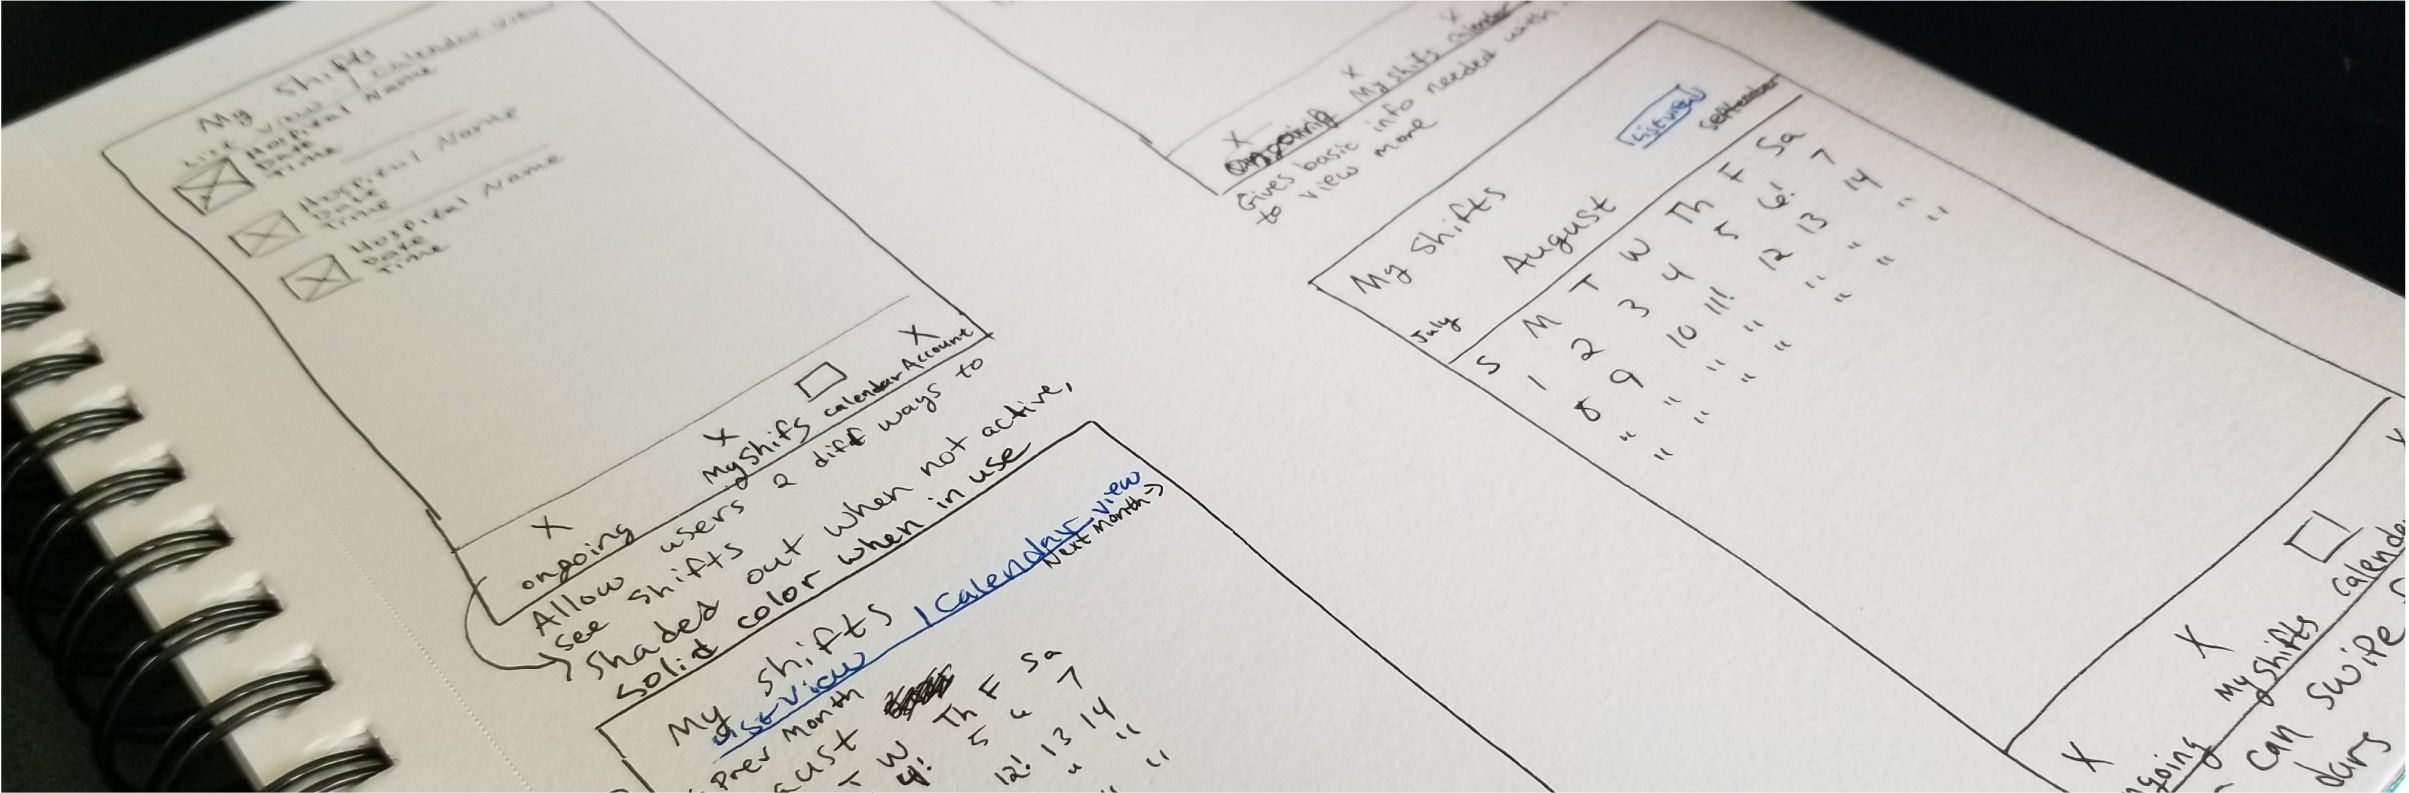 My Shifts
List view / Calendar view
Hospital Name
Date
Time
Hospital Name
Date
Time
Hospital Name
Date
Time
X
ongoing
X
My Shifs
calendar
X
Account
Allow users 2 diff ways to
see shifts
Shaded out when not active,
solid color when in use
My Shifts
List view / Calendar view
Prev Month
Next Month →
T W Th F Sa
4! 5 " 7
12! 13 14
" "
"
X
ongoing
X
My shifts
X
calendar
Gives basic info needed with
to view more
My Shifts
List view
July
August
September
S M T W Th F Sa
1 2 3 4 5 6! 7
8 9 10 11! 12 13 14
" " " " " " "
" " " " " " "
X
ngoing
X
My Shifts
Calendar
can swipe